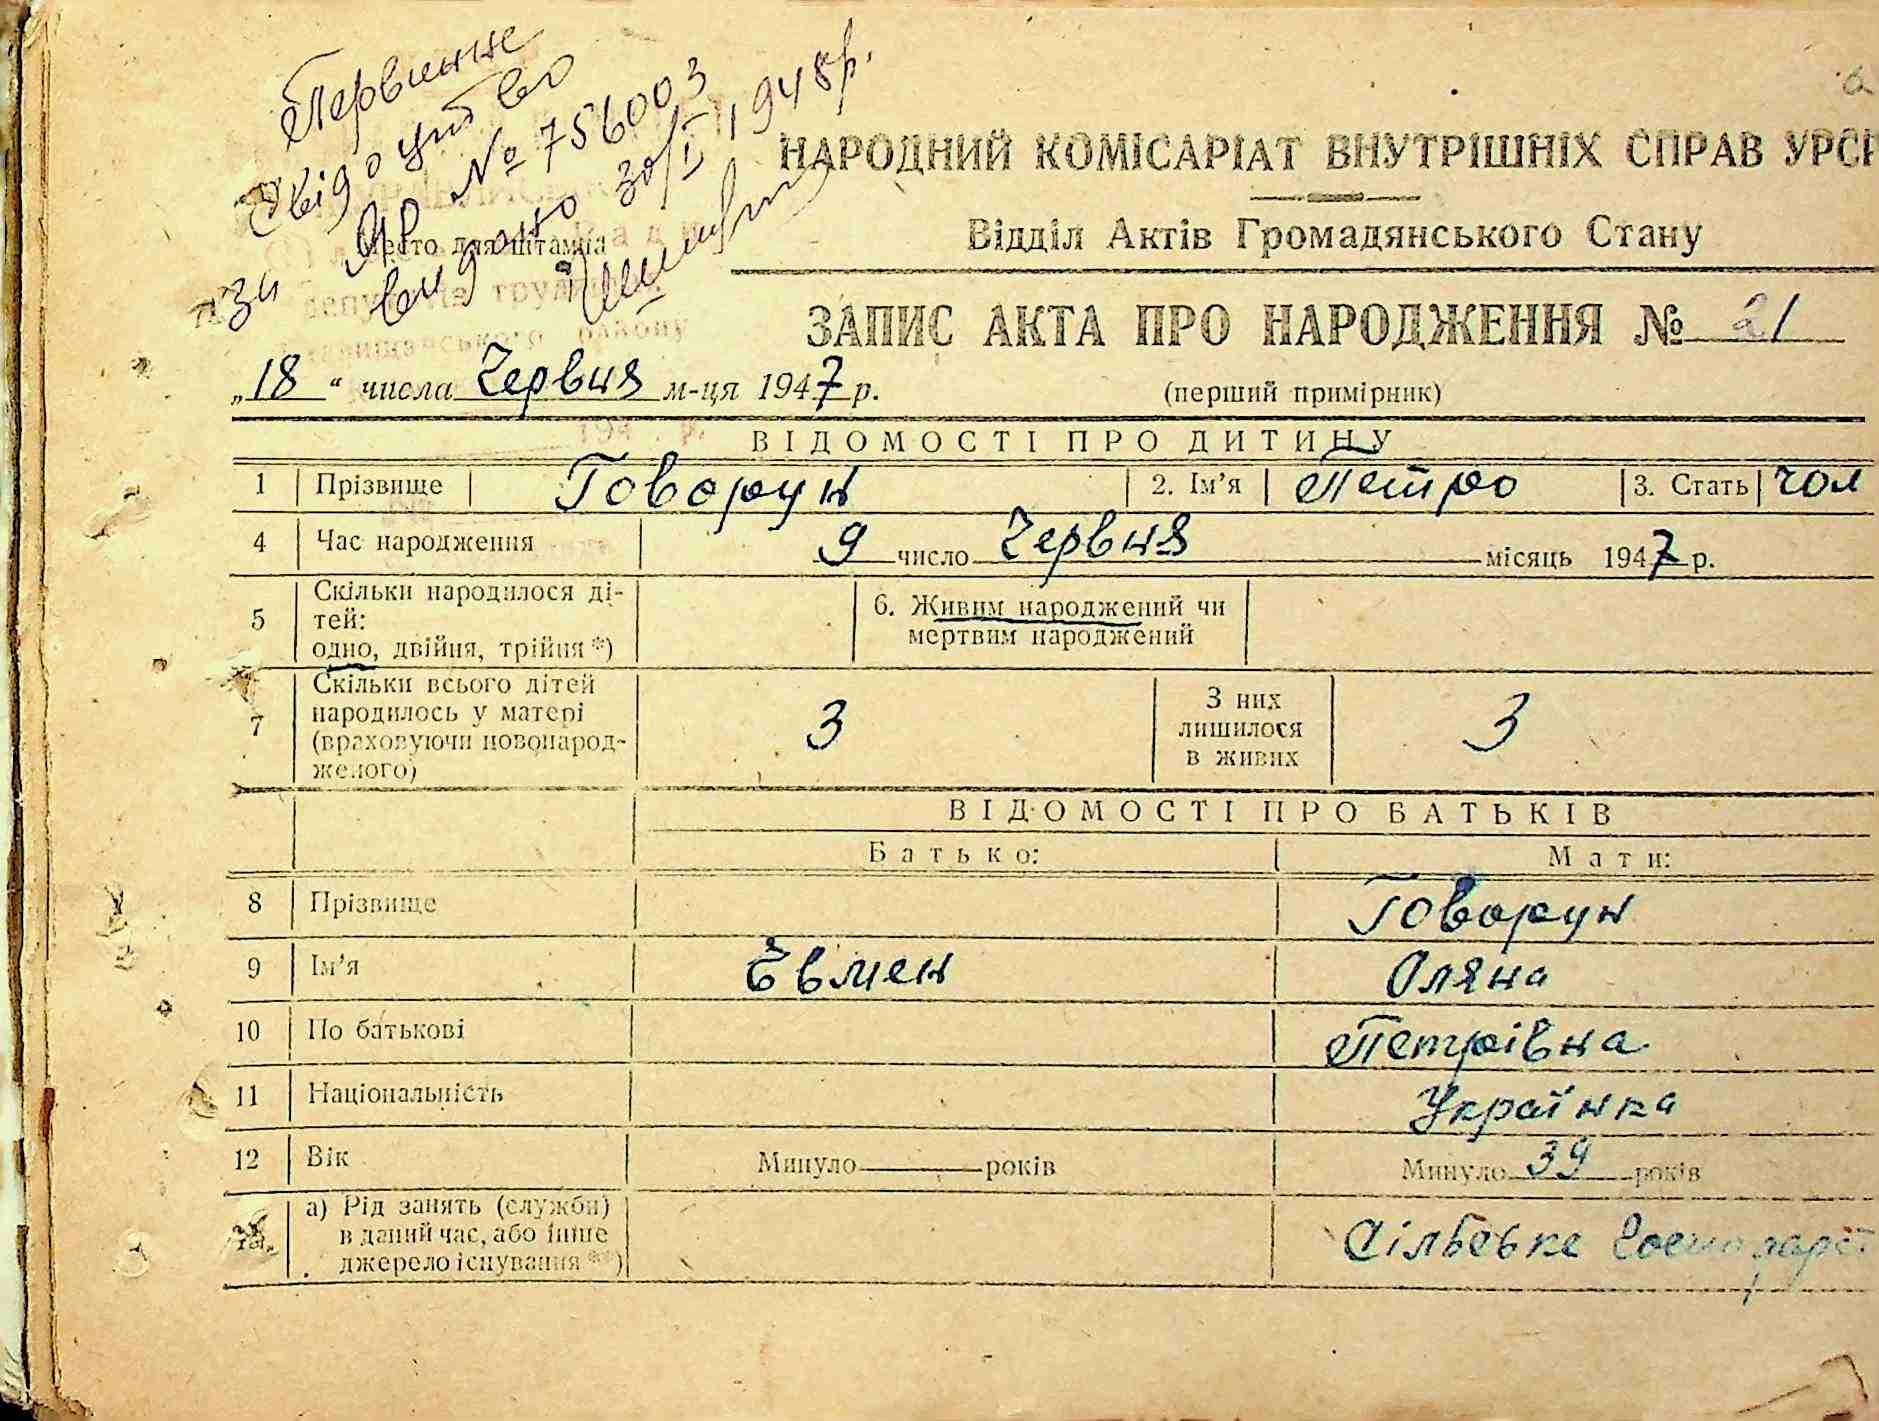 Первинне
свідоцтво
за ЯР № 756003
видано 30/І 1948р.
Место для штампа
депут трудящ
району
194 р.
НАРОДНИЙ КОМІСАРІАТ ВНУТРІШНІХ СПРАВ УРСР
Відділ Актів Громадянського Стану
ЗАПИС АКТА ПРО НАРОДЖЕННЯ № 21
„18“ числа Червня м-ця 1947 р. (перший примірник)
ВІДОМОСТІ ПРО ДИТИНУ
1 Прізвище Говорун 2. Ім'я Петро 3. Стать чол
4 Час народження 9 число Червня місяць 1947 р.
5 Скільки народилося ді-
тей:
одно, двійня, трійня *)
6. Живим народжений чи
мертвим народжений
7 Скільки всього дітей
народилось у матері
(враховуючи новонарод-
женого)
3
З них
лишилося
в живих
3
ВІДОМОСТІ ПРО БАТЬКІВ
Батько: Мати:
8 Прізвище Говорун
9 Ім'я Євмен Оляна
10 По батькові Петрівна
11 Національність Українка
12 Вік Минуло років Минуло 39 років
а) Рід занять (служби)
в даний час, або інше
джерело існування **)
Сільське господарст